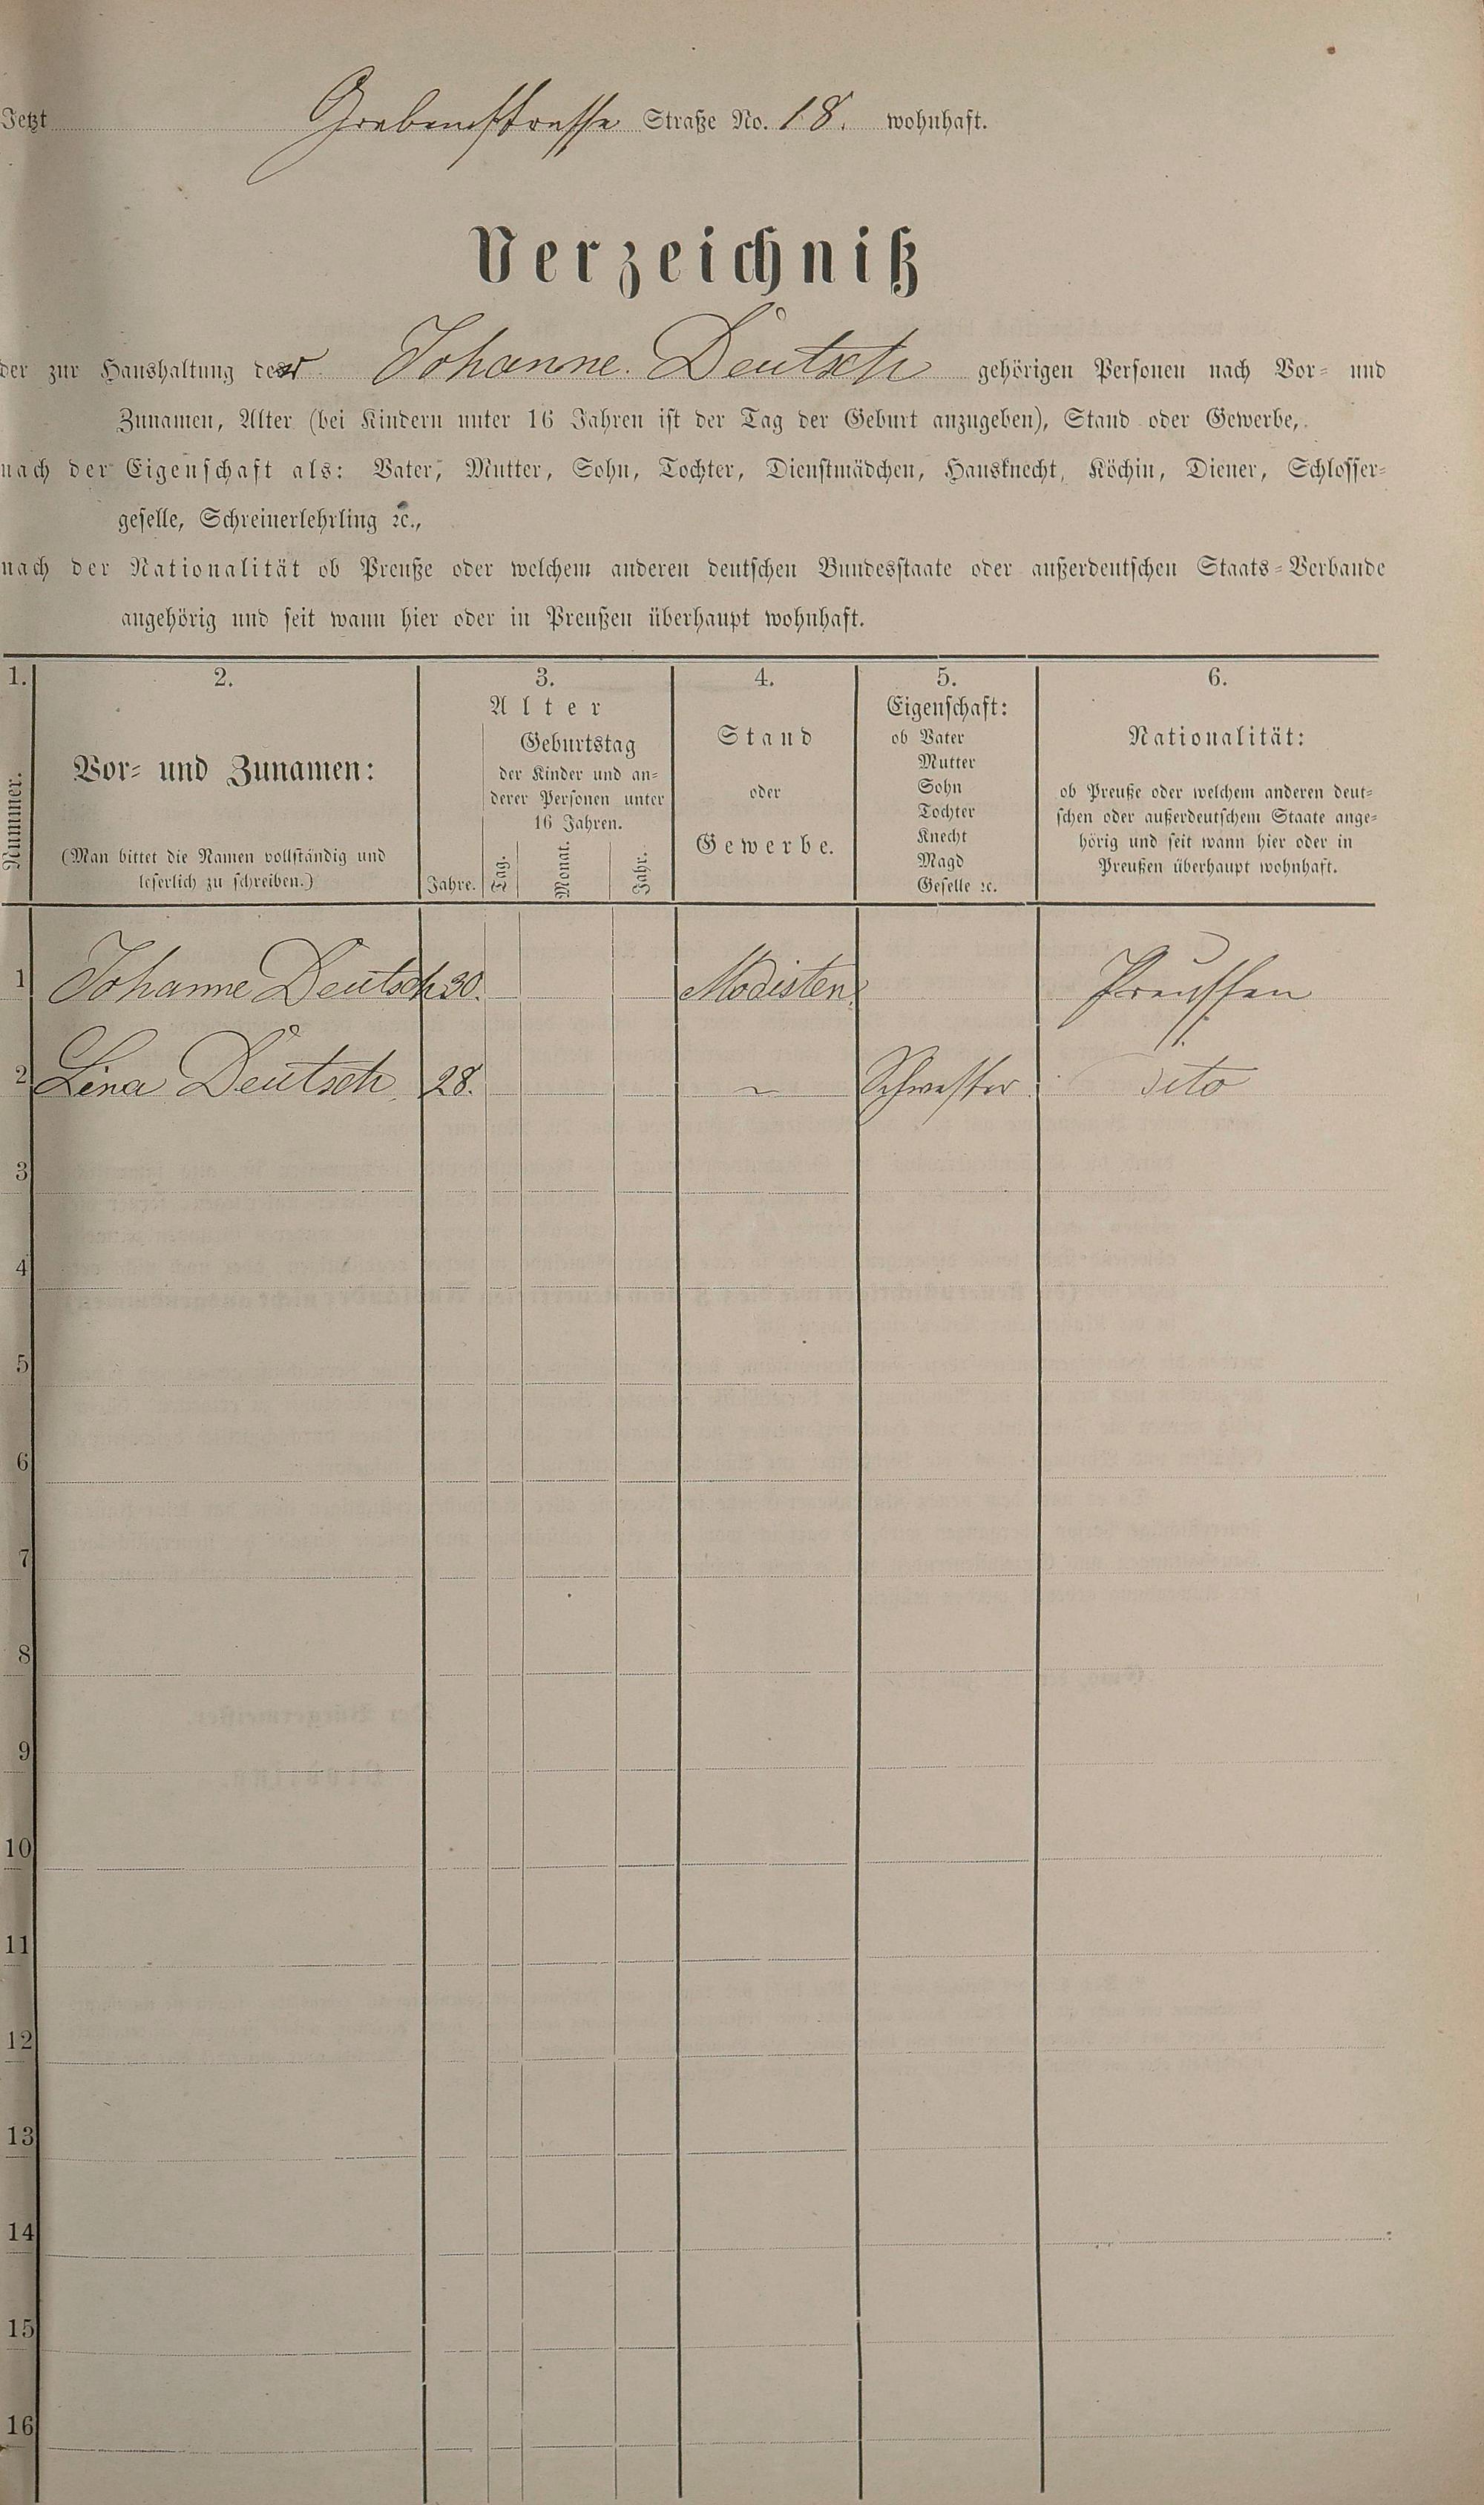 Jetzt Grabenstrasse Straße No. 18. wohnhaft.
Verzeichniß
der zur Haushaltung der Johanne Deutsch gehörigen Personen nach Vor- und
Zunamen, Alter (bei Kindern unter 16 Jahren ist der Tag der Geburt anzugeben), Stand oder Gewerbe,
nach der Eigenschaft als: Vater, Mutter, Sohn, Tochter, Dienstmädchen, Hausknecht, Köchin, Diener, Schlosser-
geselle, Schreinerlehrling ꝛc.,
nach der Nationalität ob Preuße oder welchem anderen deutschen Bundesstaate oder außerdeutschen Staats-Verbande
angehörig und seit wann hier oder in Preußen überhaupt wohnhaft.
1. 2. 3. 4. 5. 6.
Nummer.
Vor- und Zunamen:
(Man bittet die Namen vollständig und
leserlich zu schreiben.)
Alter
Jahre.
Geburtstag
der Kinder und an-
derer Personen unter
16 Jahren.
Tag. Monat. Jahr.
Stand
oder
Gewerbe.
Eigenschaft:
ob Vater
Mutter
Sohn
Tochter
Knecht
Magd
Geselle ꝛc.
Nationalität:
ob Preuße oder welchem anderen deut-
schen oder außerdeutschem Staate ange-
hörig und seit wann hier oder in
Preußen überhaupt wohnhaft.
1 Johanne Deutsch 30. Modisten Preussen
2 Lina Deutsch 28. ~ Schwester dito
3
4
5
6
7
8
9
10
11
12
13
14
15
16